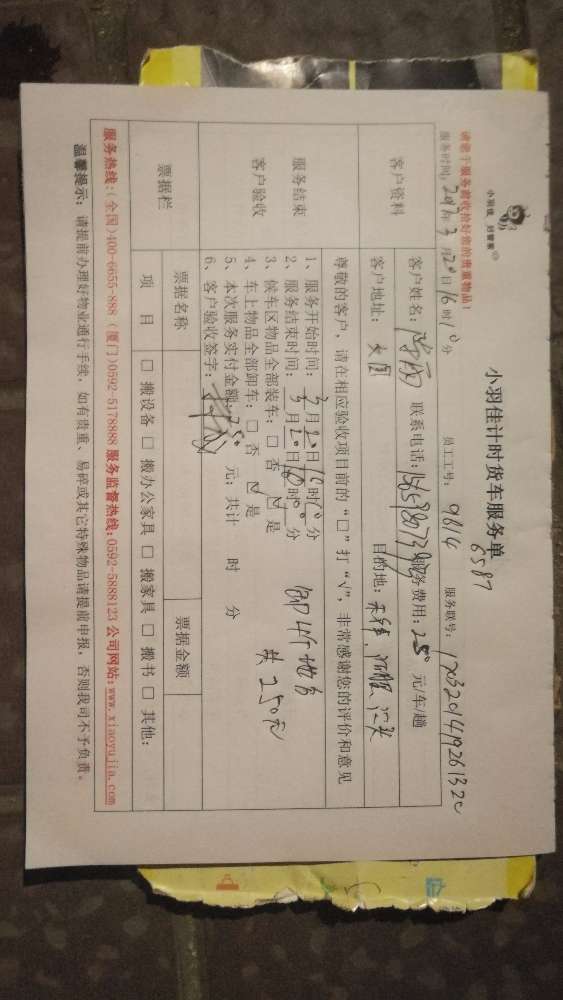 小羽佳 好管家
小羽佳计时货车服务单
6587
请您于服务前收拾好您的贵重物品！
服务时间：2017年3月20日16时10分 员工工号：9814 服务联号：
客户资料
客户姓名： 联系电话： 服务费用：250元/车/趟
客户地址： 目的地：
尊敬的客户，请在相应验收项目前的“□”打“√”，非常感谢您的评价和意见
服务结束
客户验收
1、服务开始时间：3月20日16时10分
2、服务结束时间：3月20日18时00分
3、候车区物品全部装车：□否 ☑是
4、车上物品全部卸车：□否 ☑是
5、本次服务实付金额：250元；共计 时 分
6、客户验收签字：
共250元
票据栏
票据名称 票据金额
项目 □搬设备 □搬办公家具 □搬家具 □搬书 □其他：
服务热线：(全国)400-6655-888 (厦门)0592-5178888 服务监督热线：0592-5888123 公司网站：www.xiaoyujia.com
温馨提示：请提前办理好物业通行手续，如有贵重、易碎或其它特殊物品请提前申报，否则我司不予负责。